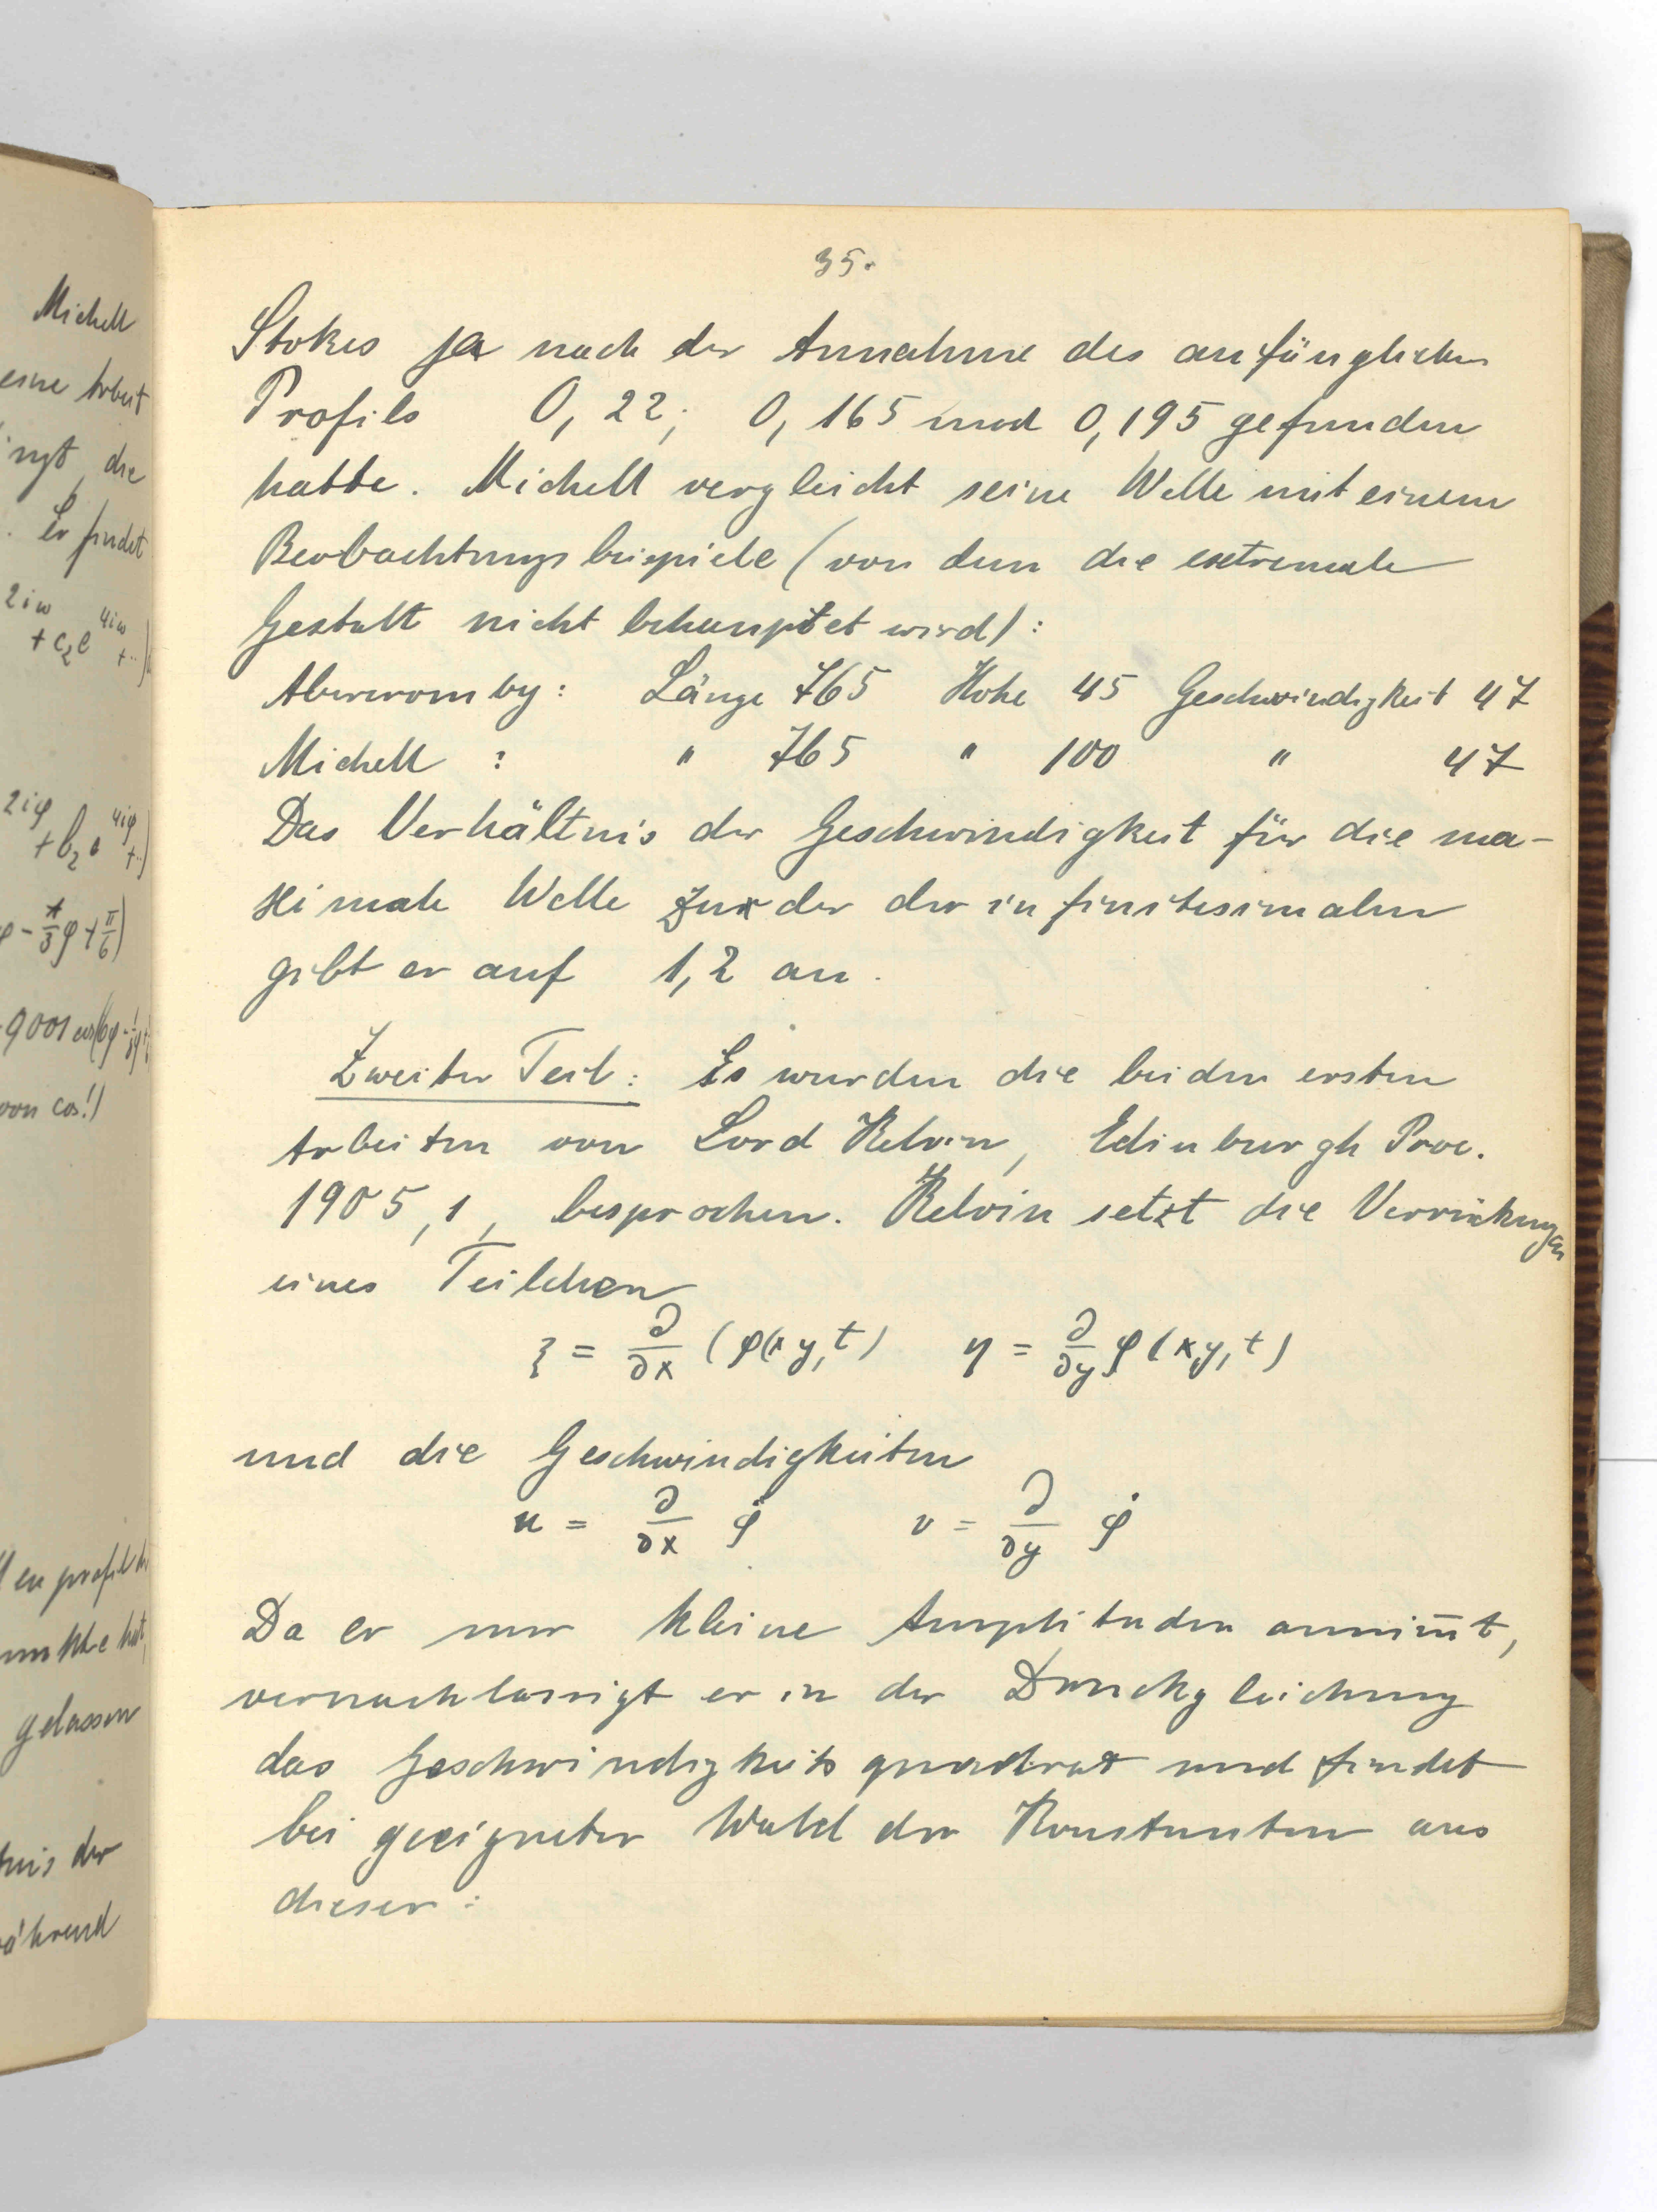 Michell
eine Arbeit
ingt, die
. Er findet
2iω 4iω
+ c₂e +..)
2iφ 4iφ
+ b₂e +..)
von cos!)
gelassen
während
35.
Stokes ja nach der Annahme des anfänglichen
Profils 0,22; 0,165 und 0,195 gefunden
hatte. Michell vergleicht seine Welle mit einem
Beobachtungsbeispiele (von dem die extremale
Gestalt nicht behauptet wird):
Abercromby: Länge 765 Hohe 45 Geschwindigkeit 47
Michell : " 765 " 100 " 47
Das Verhältnis der Geschwindigkeit für die ma-
ximale Welle zur der der infinitesimalen
gibt er auf 1,2 an.
Zweiter Teil: Es wurden die beiden ersten
Arbeiten von Lord Kelvin, Edinburgh Proc.
1905, 1, besprochen. Kelvin setzt die Verrückungen
eines Teilchen
ξ = ∂/∂x (φ(x y, t) η = ∂/∂y φ(x, y, t)
und die Geschwindigkeiten
u = ∂/∂x φ̇ v = ∂/∂y φ̇
Da er nur kleine Amplituden annim̄t,
vernachlassigt er in der Druckgleichung
das Geschwindigkeitsquadrat und findet
bei geeigneter Wahl der Konstanten aus
dieser: